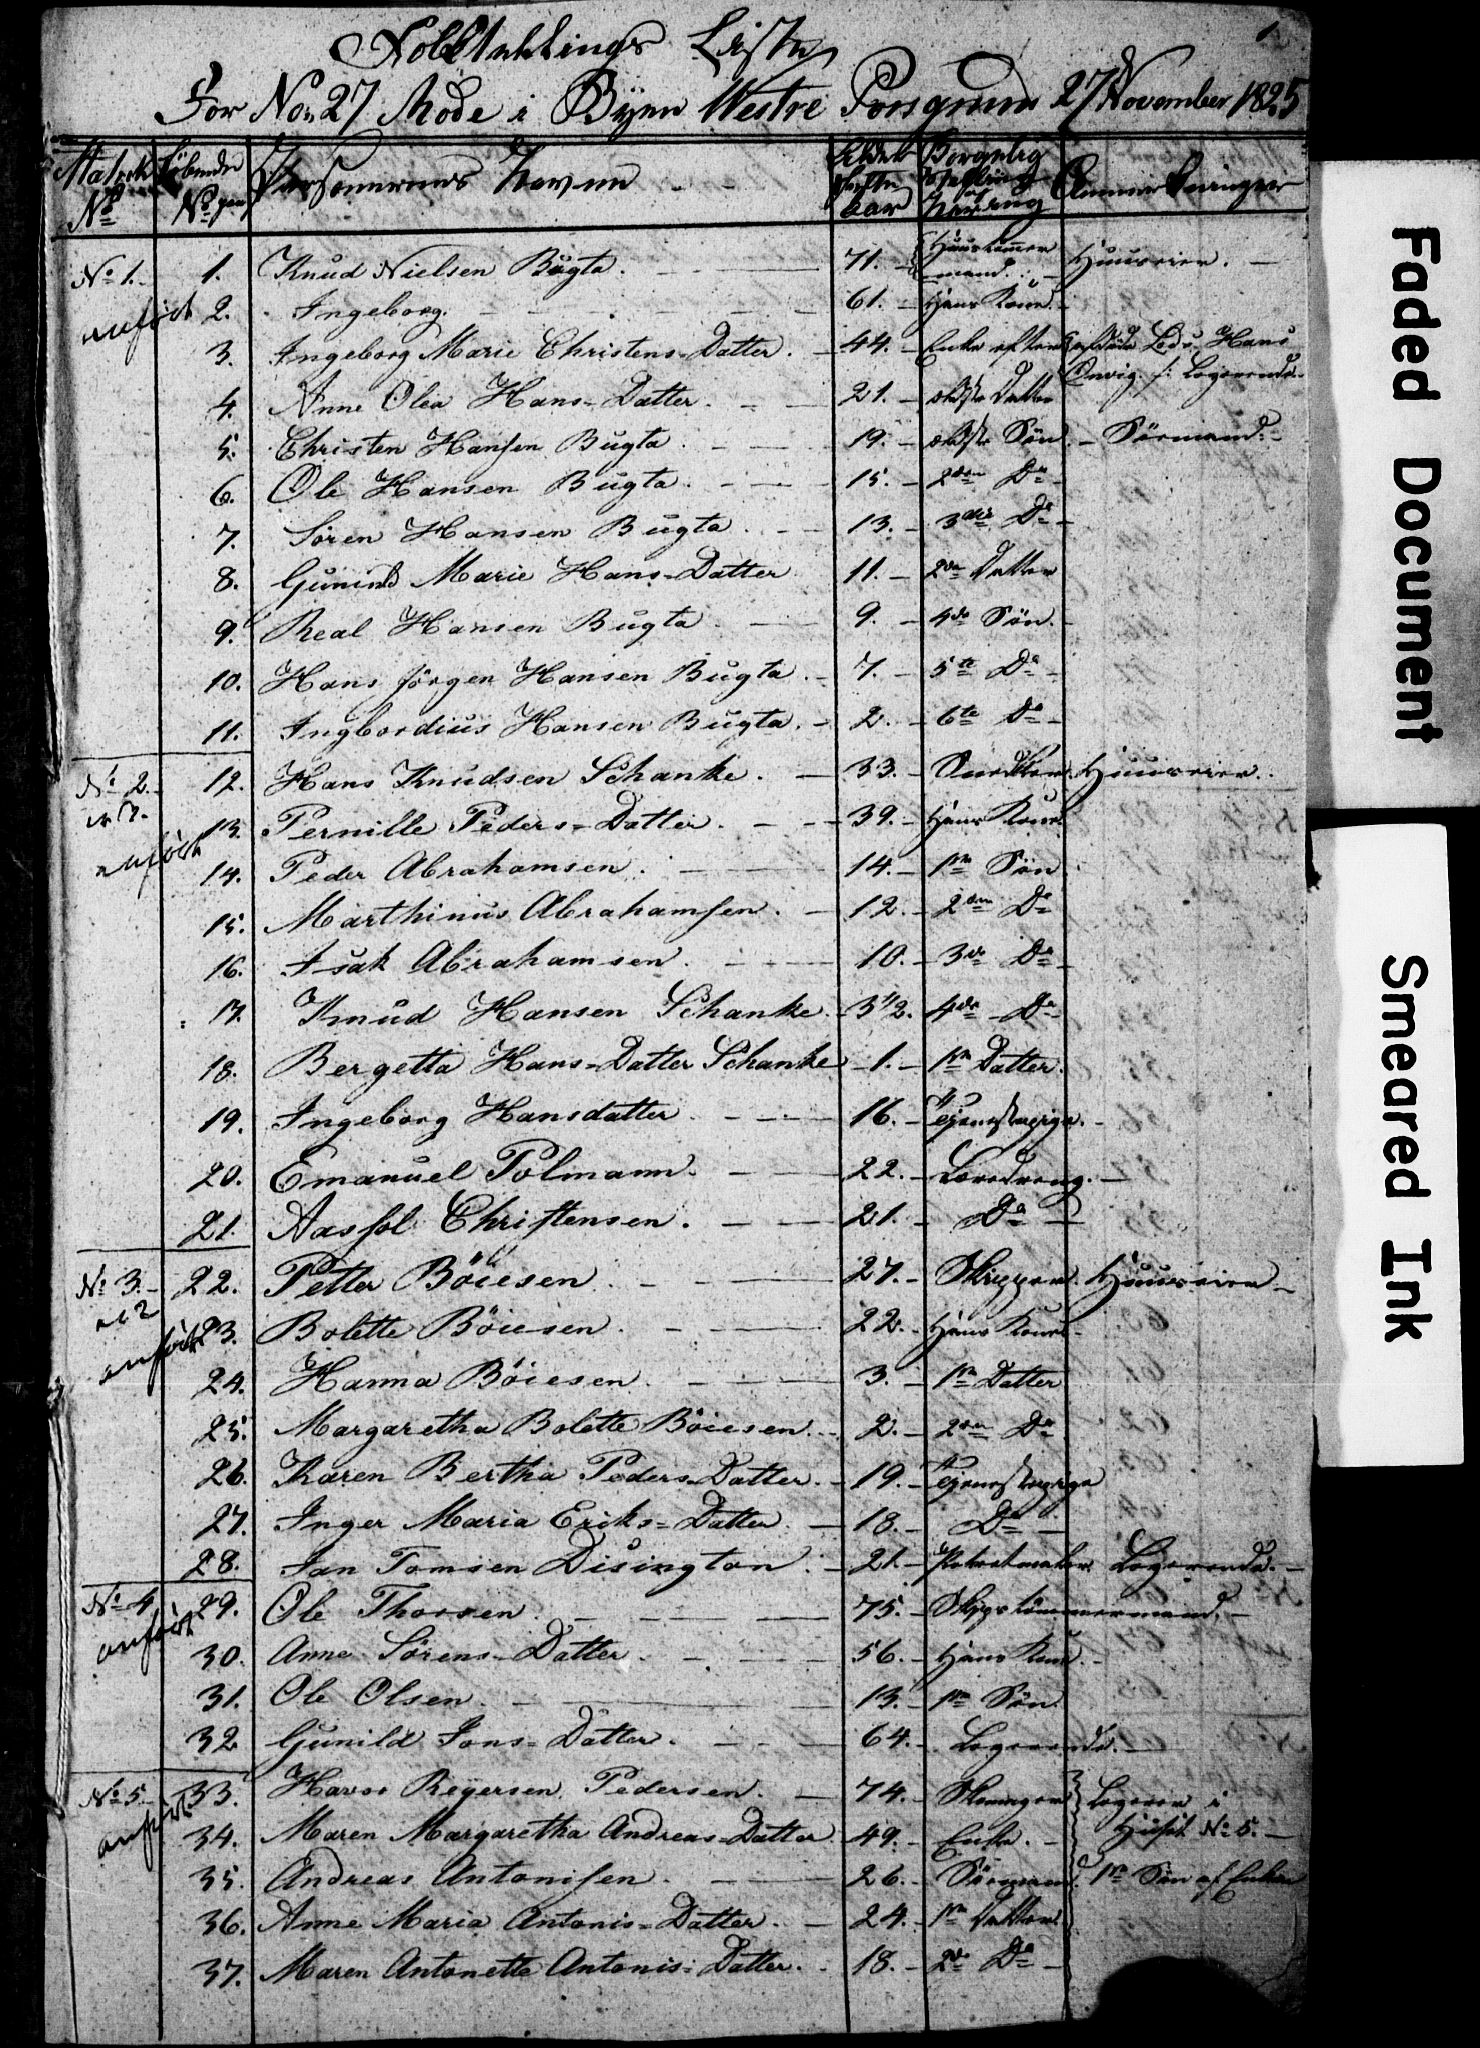 Folketellings Liste
For No 27 Rode i Byen Westre Porsgrund 27 November 1825
Matrik Løbende Personernes Navne Alder Borgerlig Anmærkninger
No No Aar
No 1. 1. Knud Nielsen Bugta. 71. Huustømmermand. Huuseier.
anført 2. Ingeborg. 61. Hans Kone
3. Ingeborg Marie Christens-Datter. 44. Enke efter Hans
4. Anne Olea Hans-Datter. 21. ældste Datter Logerende.
5. Christen Hansen Bugta. 19. ældste Søn. Sømand.
6. Ole Hansen Bugta. 15. 2den Do
7. Søren Hansen Bugta. 13. 3die Do
8. Gunild Marie Hans-Datter 11. 2den Datter
9. Real Hansen Bugta. 9. 4de Søn.
10. Hans Jörgen Hansen Bugta. 7. 5te Do
11. Ingbordius Hansen Bugta. 2. 6te Do
No 2. 12. Hans Knudsen Schanke. 33. Snedker. Huuseier.
13. Pernille Peders-Datter. 39. Hans Kone
anført 14. Peder Abrahamsen. 14. 1ste Søn
15. Marthinus Abrahamsen. 12. 2den Do
16. Isak Abrahamsen. 10. 3die Do
17. Knud Hansen Schanke. 3 1/2. 4de Do
18. Bergetta Hans-Datter Schanke 1. 1ste Datter.
19. Ingeborg Hansdatter 16. Tjenestepige.
20. Emanuel Polmann. 22. Læredreng.
21. Aassol Christensen. 21. Do
No 3. 22. Petter Böiesen. 27. Skipper. Huuseier
anført 23. Bolette Böiesen. 22. Hans Kone
24. Hanna Böiesen. 3. 1ste Datter
25. Margaretha Bolette Böiesen. 2. 2den Do
26. Karen Bertha Peders-Datter. 19. Tjenestepige
27. Inger Maria Eriks-Datter. 18. Do
28. Jan Tomsen Disington. 21. Logerende.
No 4 29. Ole Thorsen. 75. Skipstømmermand.
anført 30. Anne Sørens-Datter. 56. Hans Kone.
31. Ole Olsen. 13. 1ste Søn
32. Gunild Jons-Datter. 64. Logerende.
No 5 33. Havor Reyersen Pedersen. 74. Logerer i
anført 34. Maren Margaretha Andreas-Datter. 49. Enke. Huset No 5.
35. Andreas Antonisen. 26. Sømand. 1ste Søn af Enken
36. Anne Maria Antonis-Datter. 24. 1ste Datter.
37. Maren Antonette Antonis-Datter. 18. 2de Do
Faded Document
Smeared Ink